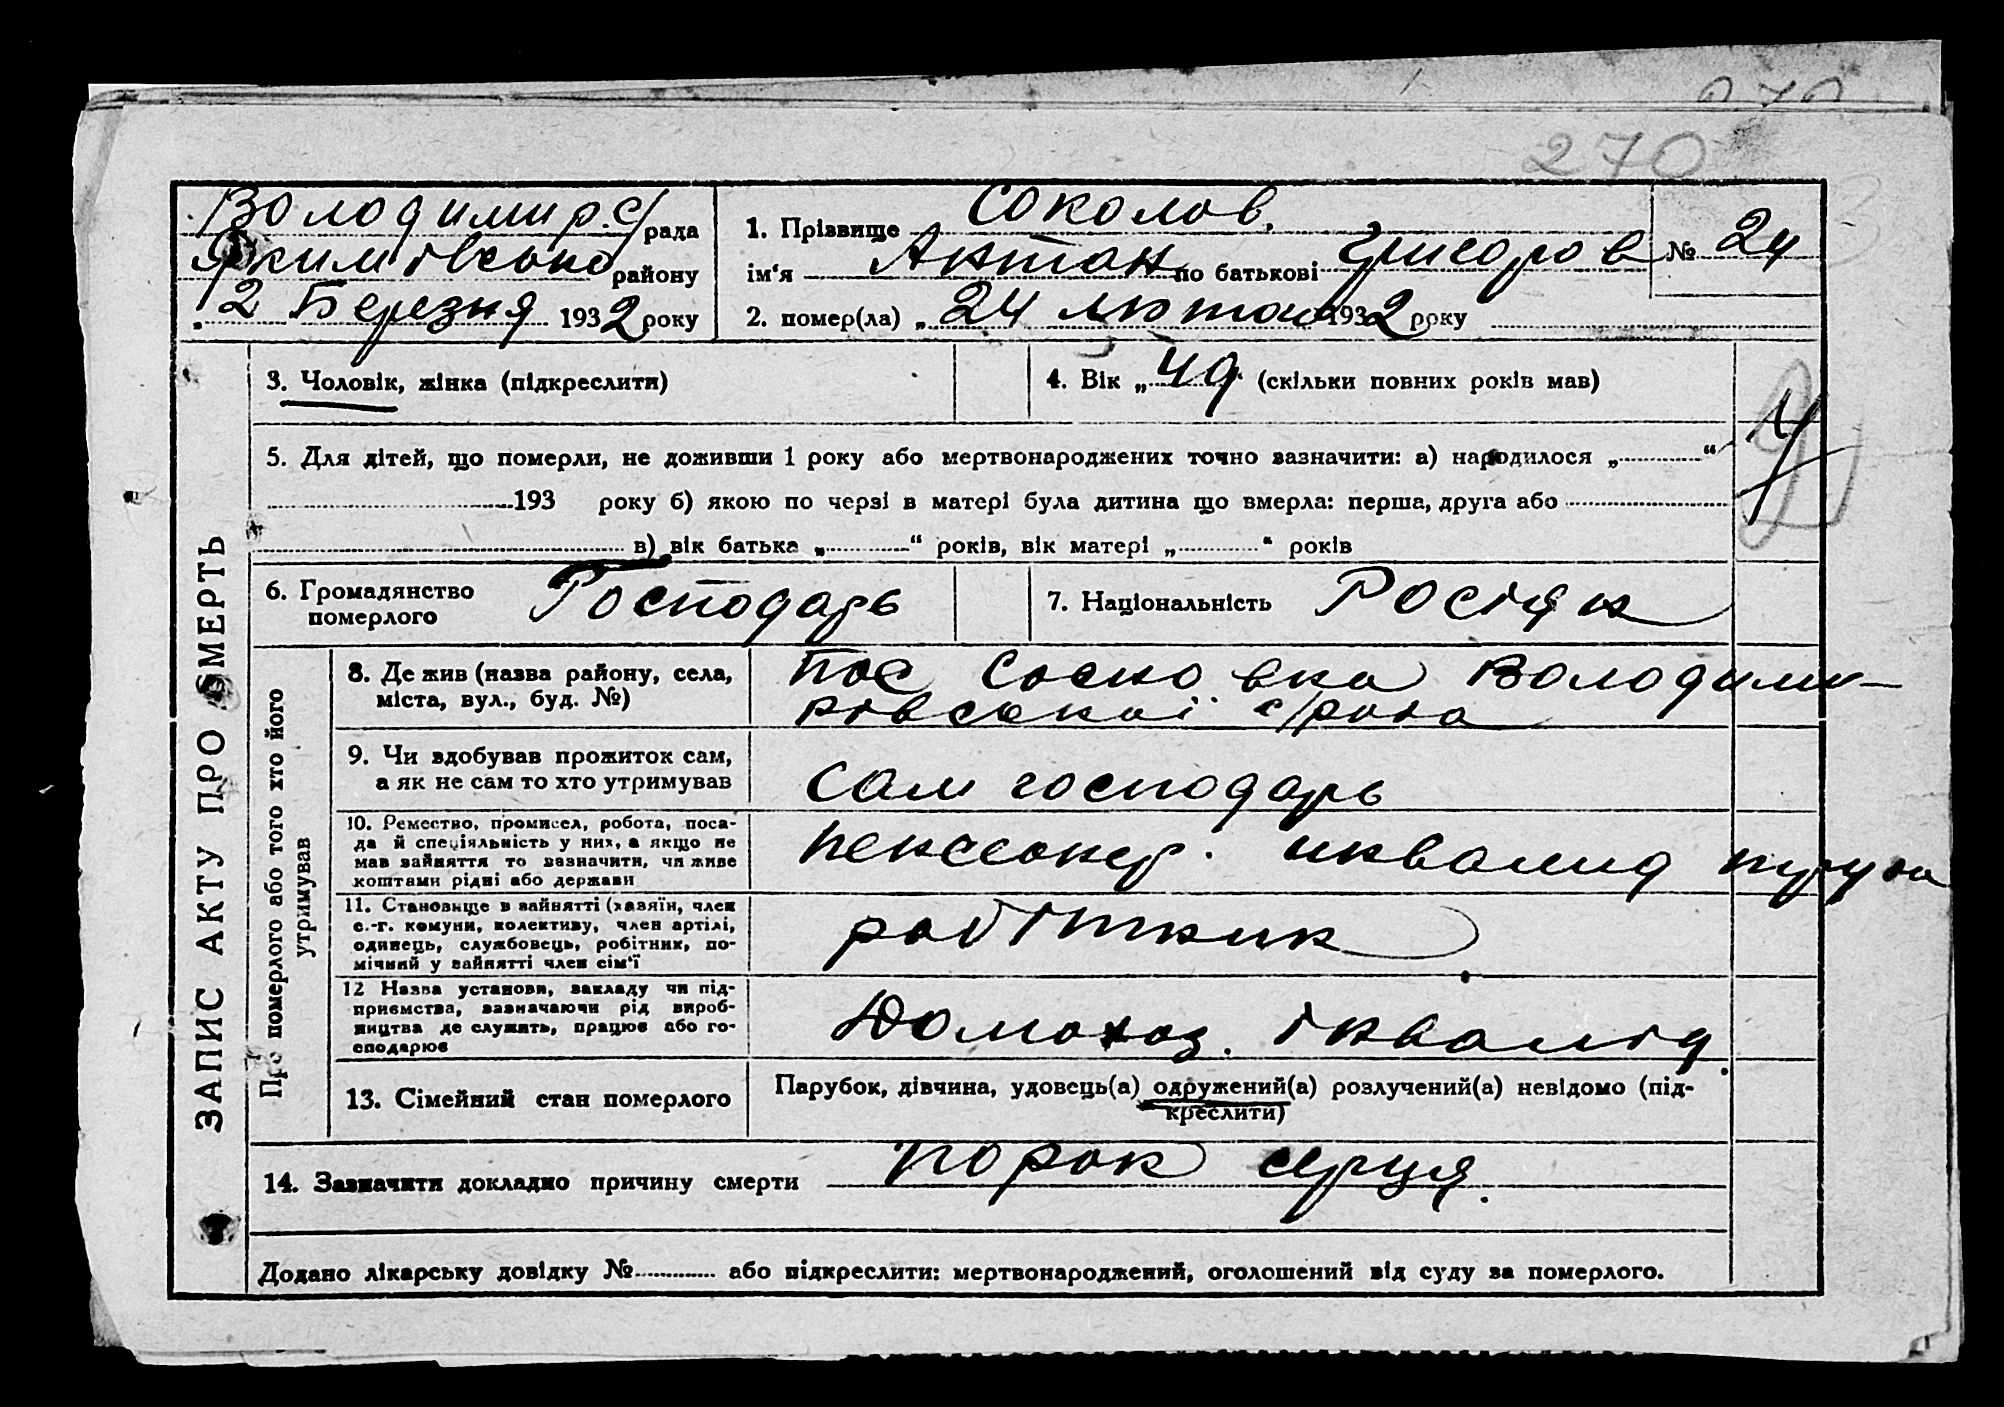 270
Володимир. с/рада
Якимівського району
„2 Березня 1932 року
1. Прізвище Соколов,
ім'я Антон по батькові Григоров
2. помер(ла) „24 лютого 1932 року
№ 24
3. Чоловік, жінка (підкреслити)
4. Вік „49 (скільки повних років мав)
5. Для дітей, що померли, не доживши 1 року або мертвонароджених точно зазначити: а) народилося „ “
193 року б) якою по черзі в матері була дитина що вмерла: перша, друга або
в) вік батька „ “ років, вік матері „ “ років
6. Громадянство
померлого
Господарь
7. Національність Росіян
ЗАПИС АКТУ ПРО SМЕРТЬ
Про померлого або того хто його
утримував
8. Де жив (назва району, села,
міста, вул., буд. №)
Пос Сосновка Володими-
рівської с/рада
9. Чи вдобував прожиток сам,
а як не сам то хто утримував
сам господарь
10. Ремество, промисел, робота, поса-
да й спеціяльність у них, а якщо не
мав зайняття то зазначити, чи живе
коштами рідні або держави
пенсеонер. инвалид труда
11. Становище в зайнятті (хазяїн, член
с.-г. комуни, колективу, член артілі,
одинець, службовець, робітник, по-
мічний у зайнятті член сім'ї
робітник
12 Назва установи, закладу чи під-
приємства, зазначаючи рід вироб-
ництва де служить, працює або го-
сподарює
Домохоз. інвалід.
13. Сімейний стан померлого
Парубок, дівчина, удовець(а) одружений(а) розлучений(а) невідомо (під-
креслити)
14. Зазначити докладно причину смерти порок серця.
Додано лікарську довідку № або підкреслити: мертвонароджений, оголошений від суду за померлого.